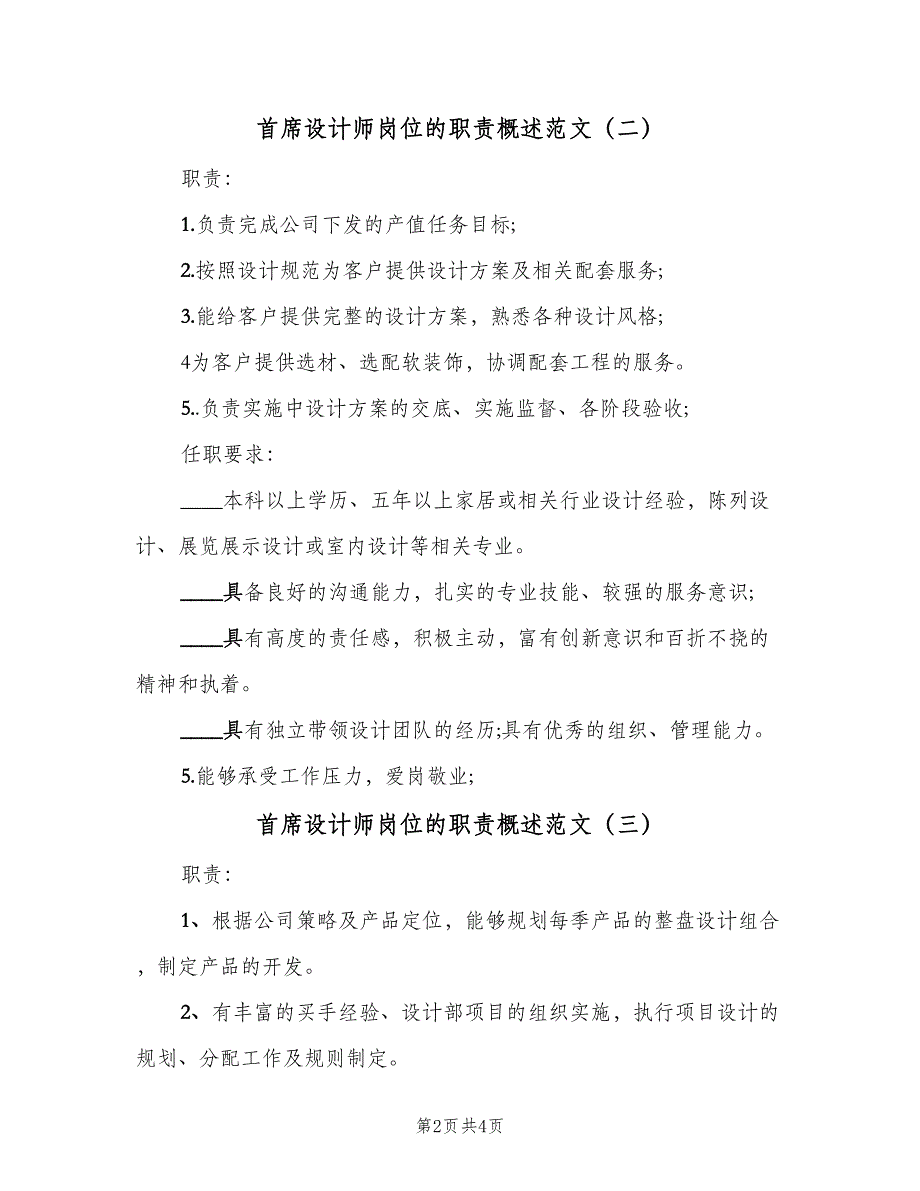 首席设计师岗位的职责概述范文（二）
职责：
1.负责完成公司下发的产值任务目标;
2.按照设计规范为客户提供设计方案及相关配套服务;
3.能给客户提供完整的设计方案，熟悉各种设计风格;
4为客户提供选材、选配软装饰，协调配套工程的服务。
5..负责实施中设计方案的交底、实施监督、各阶段验收;
任职要求：
____本科以上学历、五年以上家居或相关行业设计经验，陈列设
计、展览展示设计或室内设计等相关专业。
____具备良好的沟通能力，扎实的专业技能、较强的服务意识;
____具有高度的责任感，积极主动，富有创新意识和百折不挠的
精神和执着。
____具有独立带领设计团队的经历;具有优秀的组织、管理能力。
5.能够承受工作压力，爱岗敬业;
首席设计师岗位的职责概述范文（三）
职责：
1、根据公司策略及产品定位，能够规划每季产品的整盘设计组合
，制定产品的开发。
2、有丰富的买手经验、设计部项目的组织实施，执行项目设计的
规划、分配工作及规则制定。
第2页共4页